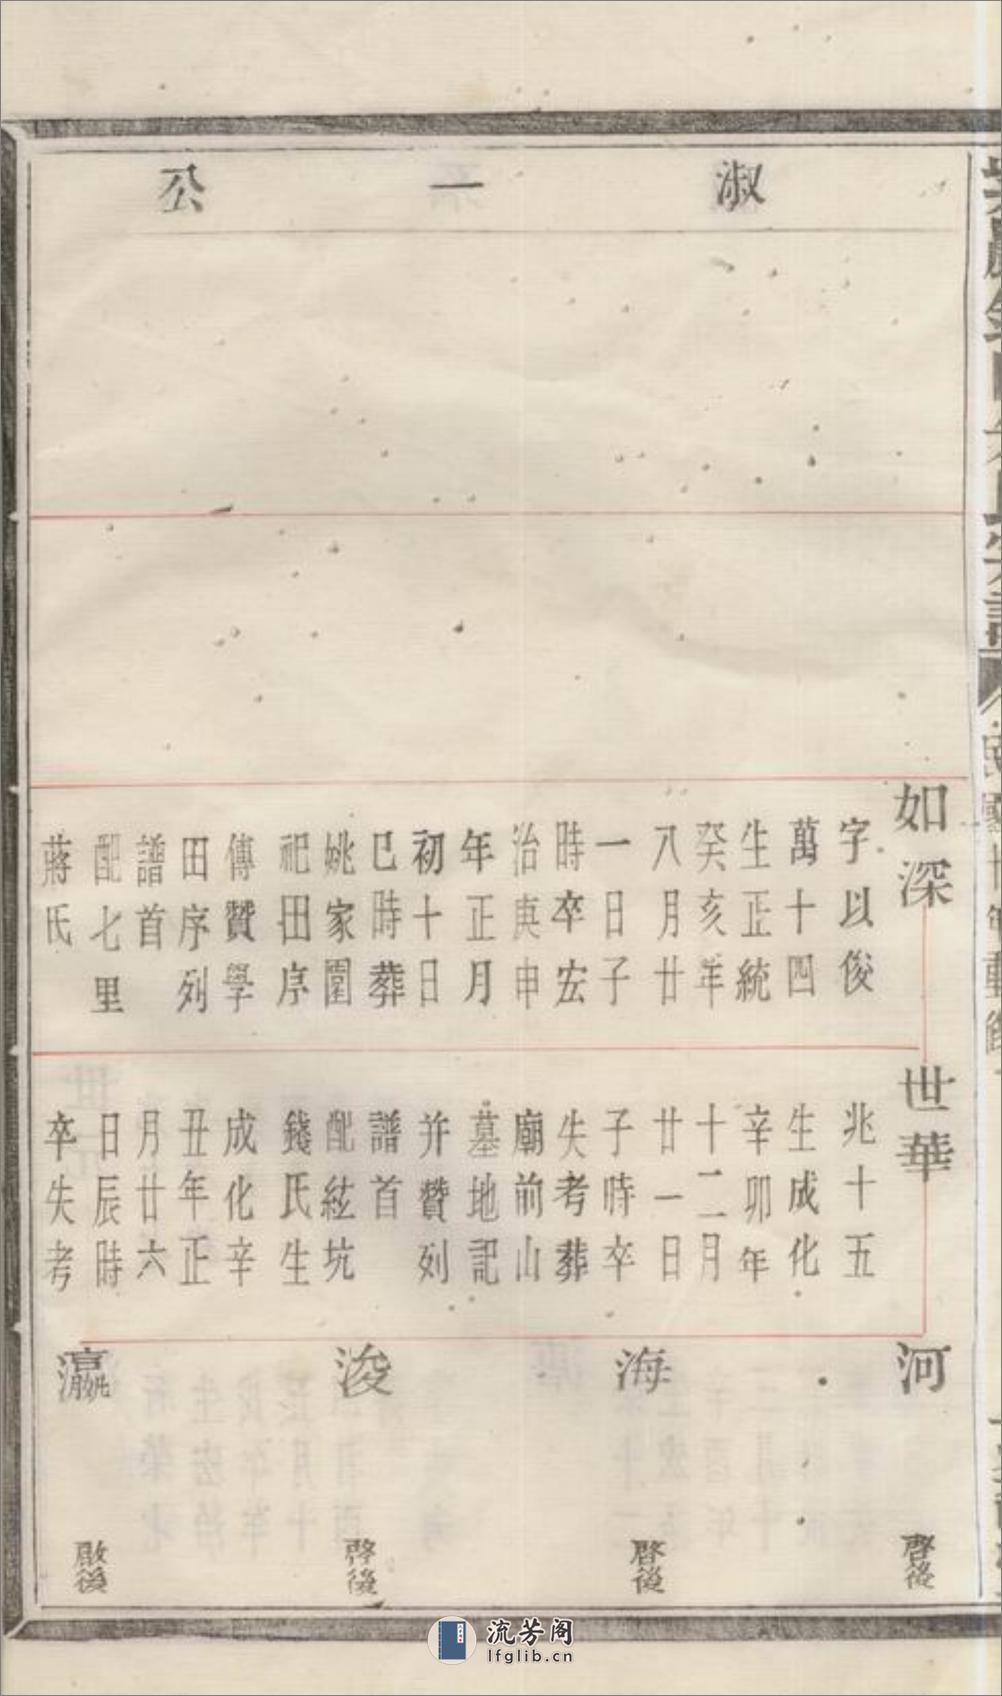 淑一公
如深
字以俊
萬十四
生正統
癸亥年
八月廿
一日子
時卒宏
治庚申
年正月
初十日
巳時葬
姚家園
祀田序
傳贊學
田序列
譜首
配七里
蔣氏
世華
兆十五
生成化
辛卯年
十二月
廿一日
子時卒
失考葬
廟前山
墓地記
并贊列
譜首
配紘坑
錢氏生
成化辛
丑年正
月廿六
日辰時
卒失考
河
啓後
海
啓後
浚
啓後
瀛
啟後
流芳阁
lfglib.cn